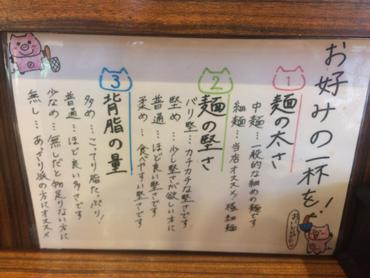 お好みの一杯を!
1
麺の太さ
中麺…一般的な細めの麺です
細麺…当店オススメ!極細麺
2
麺の堅さ
バリ堅…カチカチな堅さです
堅め…少し堅さが欲しい方に
普通…ほど良い堅さです
柔め…食べやすい堅さです
3
背脂の量
多め…こってり脂たっぷり!
普通…ほど良い多さです
少なめ…無しだと物足りない方に
無し…あっさり派の方にオススメ